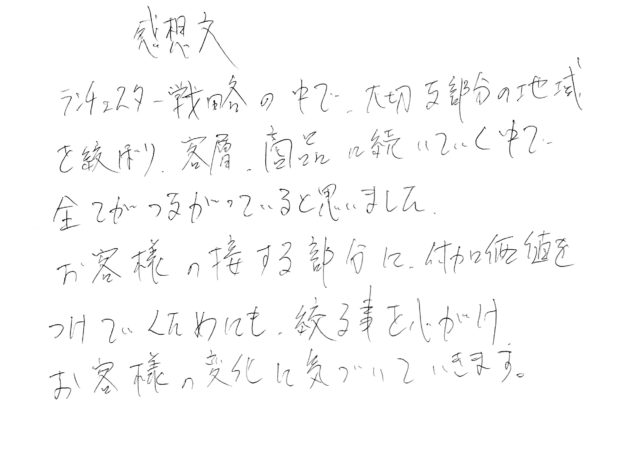 感想文
ランチェスター戦略の中で、大切な部分の地域
を絞り、客層、商品に続いていく中で
全てがつながっていると思いました。
お客様の接する部分に、付加価値を
つけていくためにも、絞る事を心がけ
お客様の変化に気づいていきます。